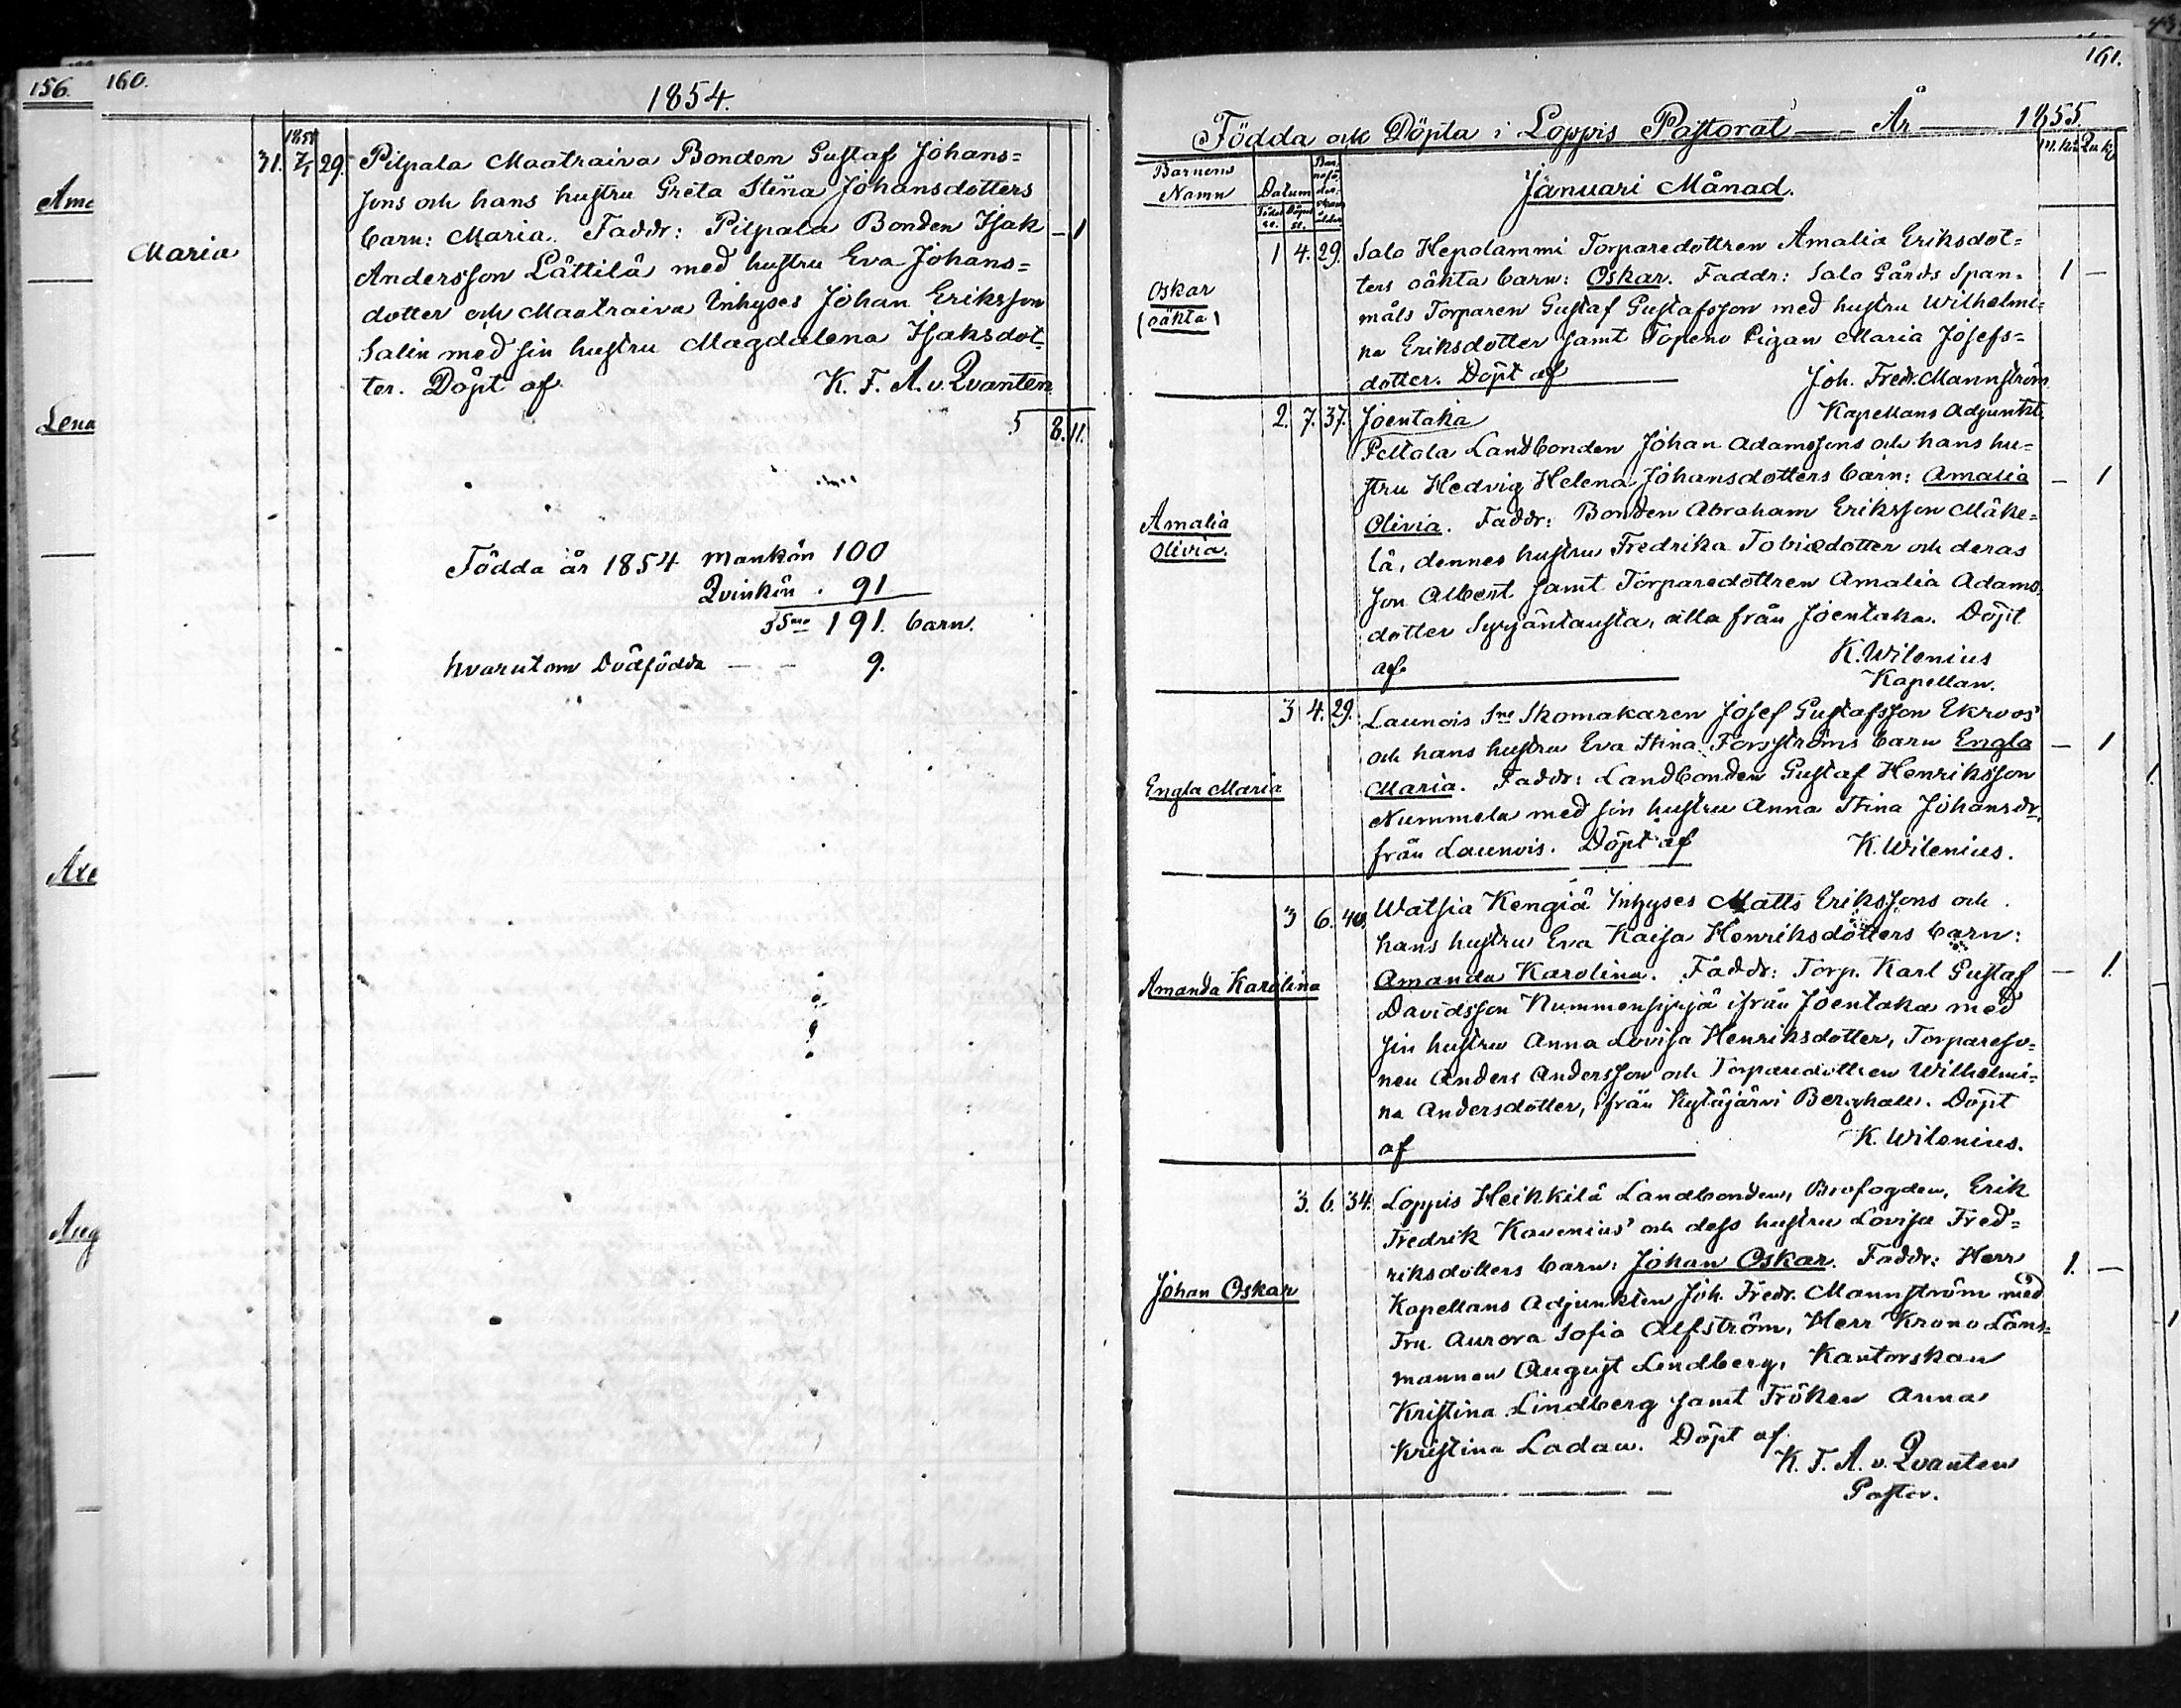 156.
Ame
Lena
Axe
Aug
160.
1854.
Maria
31. 1855 7/1 29. Pilpala Maatraiva Bonden Gustaf Johans=
sons och hans hustru Greta Stina Johansdotters
barn: Maria. Faddr: Pilpala Bonden Isak — 1
Andersson Lättilä med hustru Eva Johans=
dotter och Maatraiva Inhyses Johan Eriksson
Salin med sin hustru Magdalena Isaksdot=
ter. Döpt af K. F. A. v. Qvanten.
8. 11.
Födda år 1854 Mankön 100
Qvinkön . 91
Sma 191. barn.
hvarutom Dödfödda — — 9.
161.
Födda och Döpta i Loppis Pastorat — År — 1855.
Barnens Namn
Datum
Födel se. Döpel se.
M. kö Qu. kö
Januari Månad.
Oskar
(oäkta)
1 4. 29. Salo Hepolammi Torparedottren Amalia Eriksdot=
ters oäkta barn: Oskar. Faddr: Salo Gårds Span= 1 —
måls Torparen Gustaf Gustafsson med hustru Wilhelmi=
na Eriksdotter samt Topeno Pigan Maria Josefs=
dotter. Döpt af Joh. Fredr. Mannström
Kapellans Adjunkt.
2. 7. 37. Joentaka
Peltola Landbonden Johan Adamssons och hans hu=
stru Hedvig Helena Johansdotters barn: Amalia — 1
Amalia
Olivia.
Olivia. Faddr: Bonden Abraham Eriksson Mäke=
lä, dennes hustru Fredrika Tobiædotter och deras
son Albert samt Torparedottren Amalia Adams=
dotter Syrjäntausta, alla från Joentaka. Döpt
af K. Wilenius
Kapellan.
3 4. 29. Launois Sne Skomakaren Josef Gustafsson Ekroos'
och hans hustru Eva Stina Forsströms barn Engla — 1
Engla Maria
Maria. Faddr: Landbonden Gustaf Henriksson
Nummela med sin hustru Anna Stina Johansdr.
från Launois. Döpt af K. Wilenius.
3 6. 40. Watsia Kengiä Inhyses Matts Erikssons och
hans hustru Eva Kaisa Henriksdotters barn:
Amanda Karolina
Amanda Karolina. Faddr: Torp. Karl Gustaf — 1.
Davidsson Nummensyrjä ifrån Joentaka med
sin hustru Anna Lovisa Henriksdotter, Torpareso=
nen Anders Andersson och Torparedottren Wilhelmi=
na Andersdotter, ifrån Kytäjärvi Berghall. Döpt
af K. Wilenius.
3. 6. 34. Loppis Heikkilä Landbonden, Brofogden, Erik
Fredrik Kavenius' och dess hustru Lovisa Fred=
riksdotters barn: Johan Oskar. Faddr: Herr 1. —
Johan Oskar
Kapellans Adjunkten Joh. Fredr. Mannström med
Fru Aurora Sofia Alfström, Herr Krono Läns=
mannen August Lindberg, Kantorskan
Kristina Lindberg samt Fröken Anna
Kristina Ladau. Döpt af
K. F. A. v. Qvanten
Pastor.